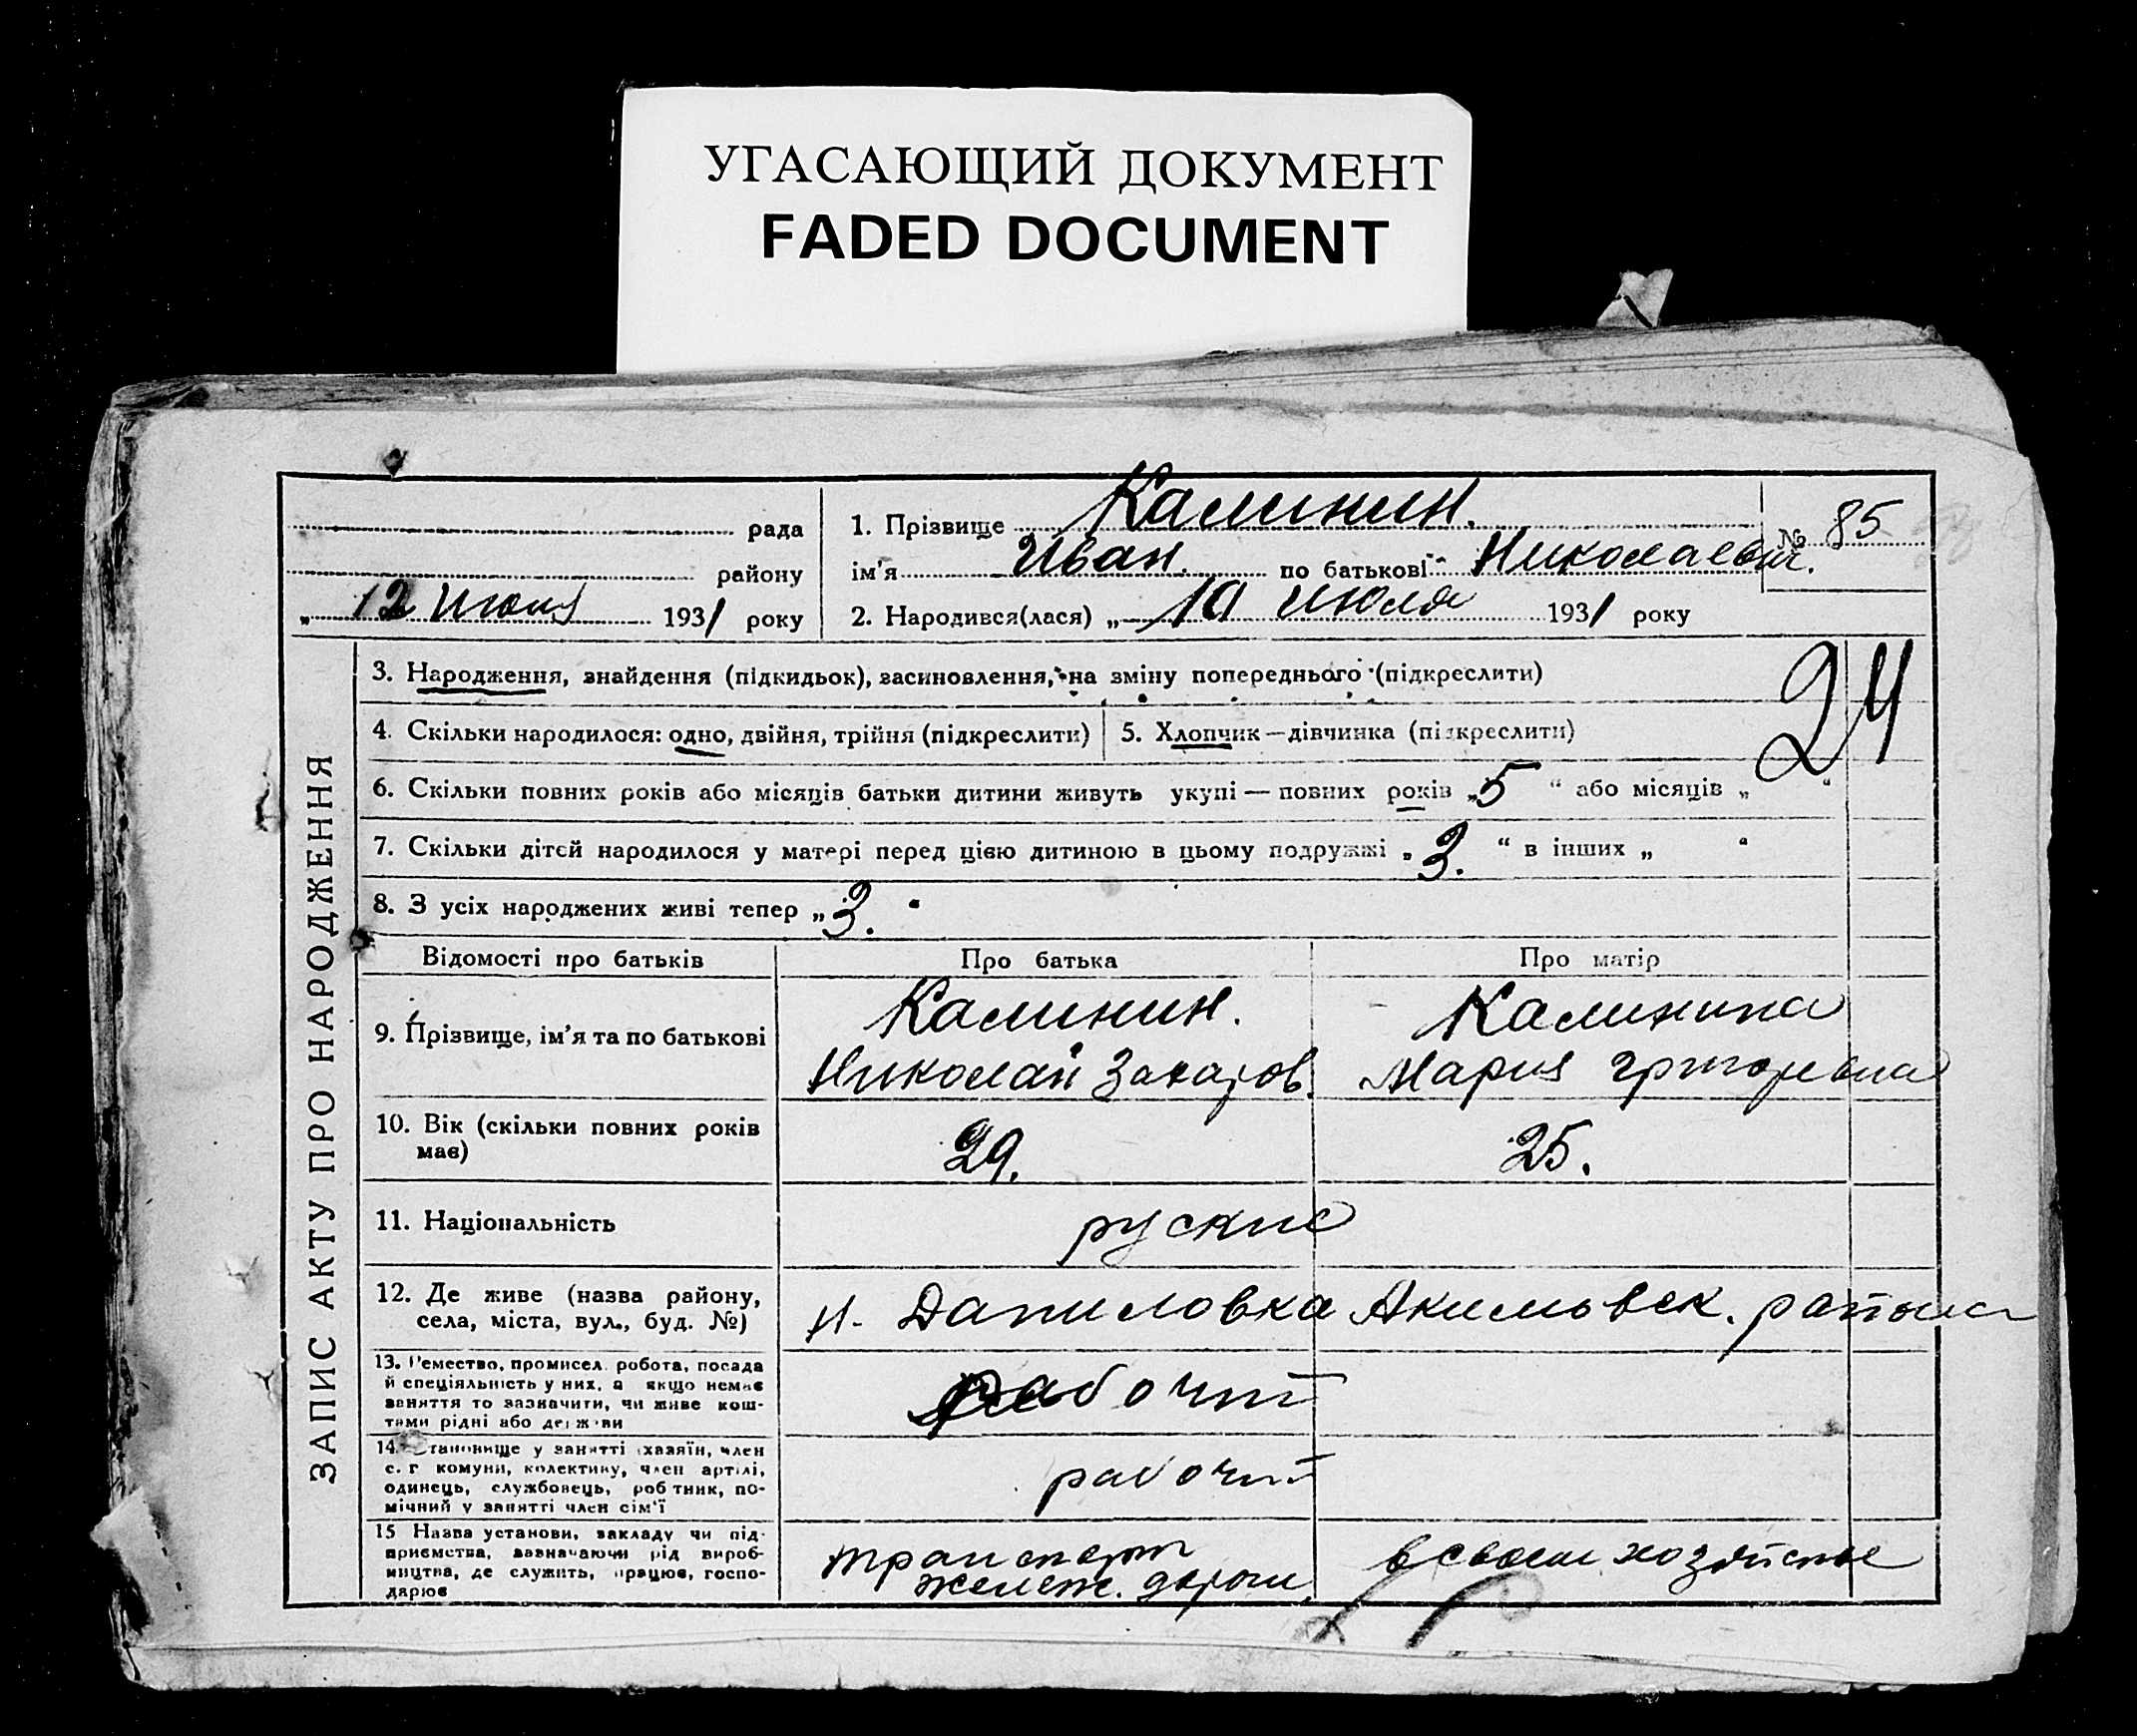 УГАСАЮЩИЙ ДОКУМЕНТ
FADED DOCUMENT
рада
району
„ 12 Июля 1931 року
1. Прізвище Калинин.
ім'я Иван. по батькові Николаевич.
№ 85
2. Народився(лася) „ 10 Июля 1931 року
24
ЗАПИС АКТУ ПРО НАРОДЖЕННЯ
3. Народження, знайдення (підкидьок), засиновлення, на зміну попереднього (підкреслити)
4. Скільки народилося: одно, двійня, трійня (підкреслити)
5. Хлопчик—дівчинка (підкреслити)
6. Скільки повних років або місяців батьки дитини живуть укупі — повних років „5“ або місяців „ “
7. Скільки дітей народилося у матері перед цією дитиною в цьому подружжі „3.“ в інших „ “
8. З усіх народжених живі тепер „3.“
Відомості про батьків Про батька Про матір
9. Прізвище, ім'я та по батькові
Калинин.
Николай Захаров.
Калинина
Мария Григорьевна
10. Вік (скільки повних років
має)
29. 25.
11. Національність руские
12. Де живе (назва району,
села, міста, вул., буд. №)
Даниловка Акимовск. района
13. Ремество, промисел, робота, посада
й спеціяльність у них, а якщо немає
заняття то зазначити, чи живе кош-
тами рідні або держави
рабочий
14. Становище у занятті (хазяїн, член
с.-г. комуни, колективу, член артілі,
одинець, службовець, робітник, по-
мічний у занятті член сім'ї
рабочий
15 Назва установи, закладу чи під-
приємства, зазначаючи рід вироб-
ництва, де служить, працює, госпо-
дарює
транспорт
железн. дороги
в своем хозяйстве